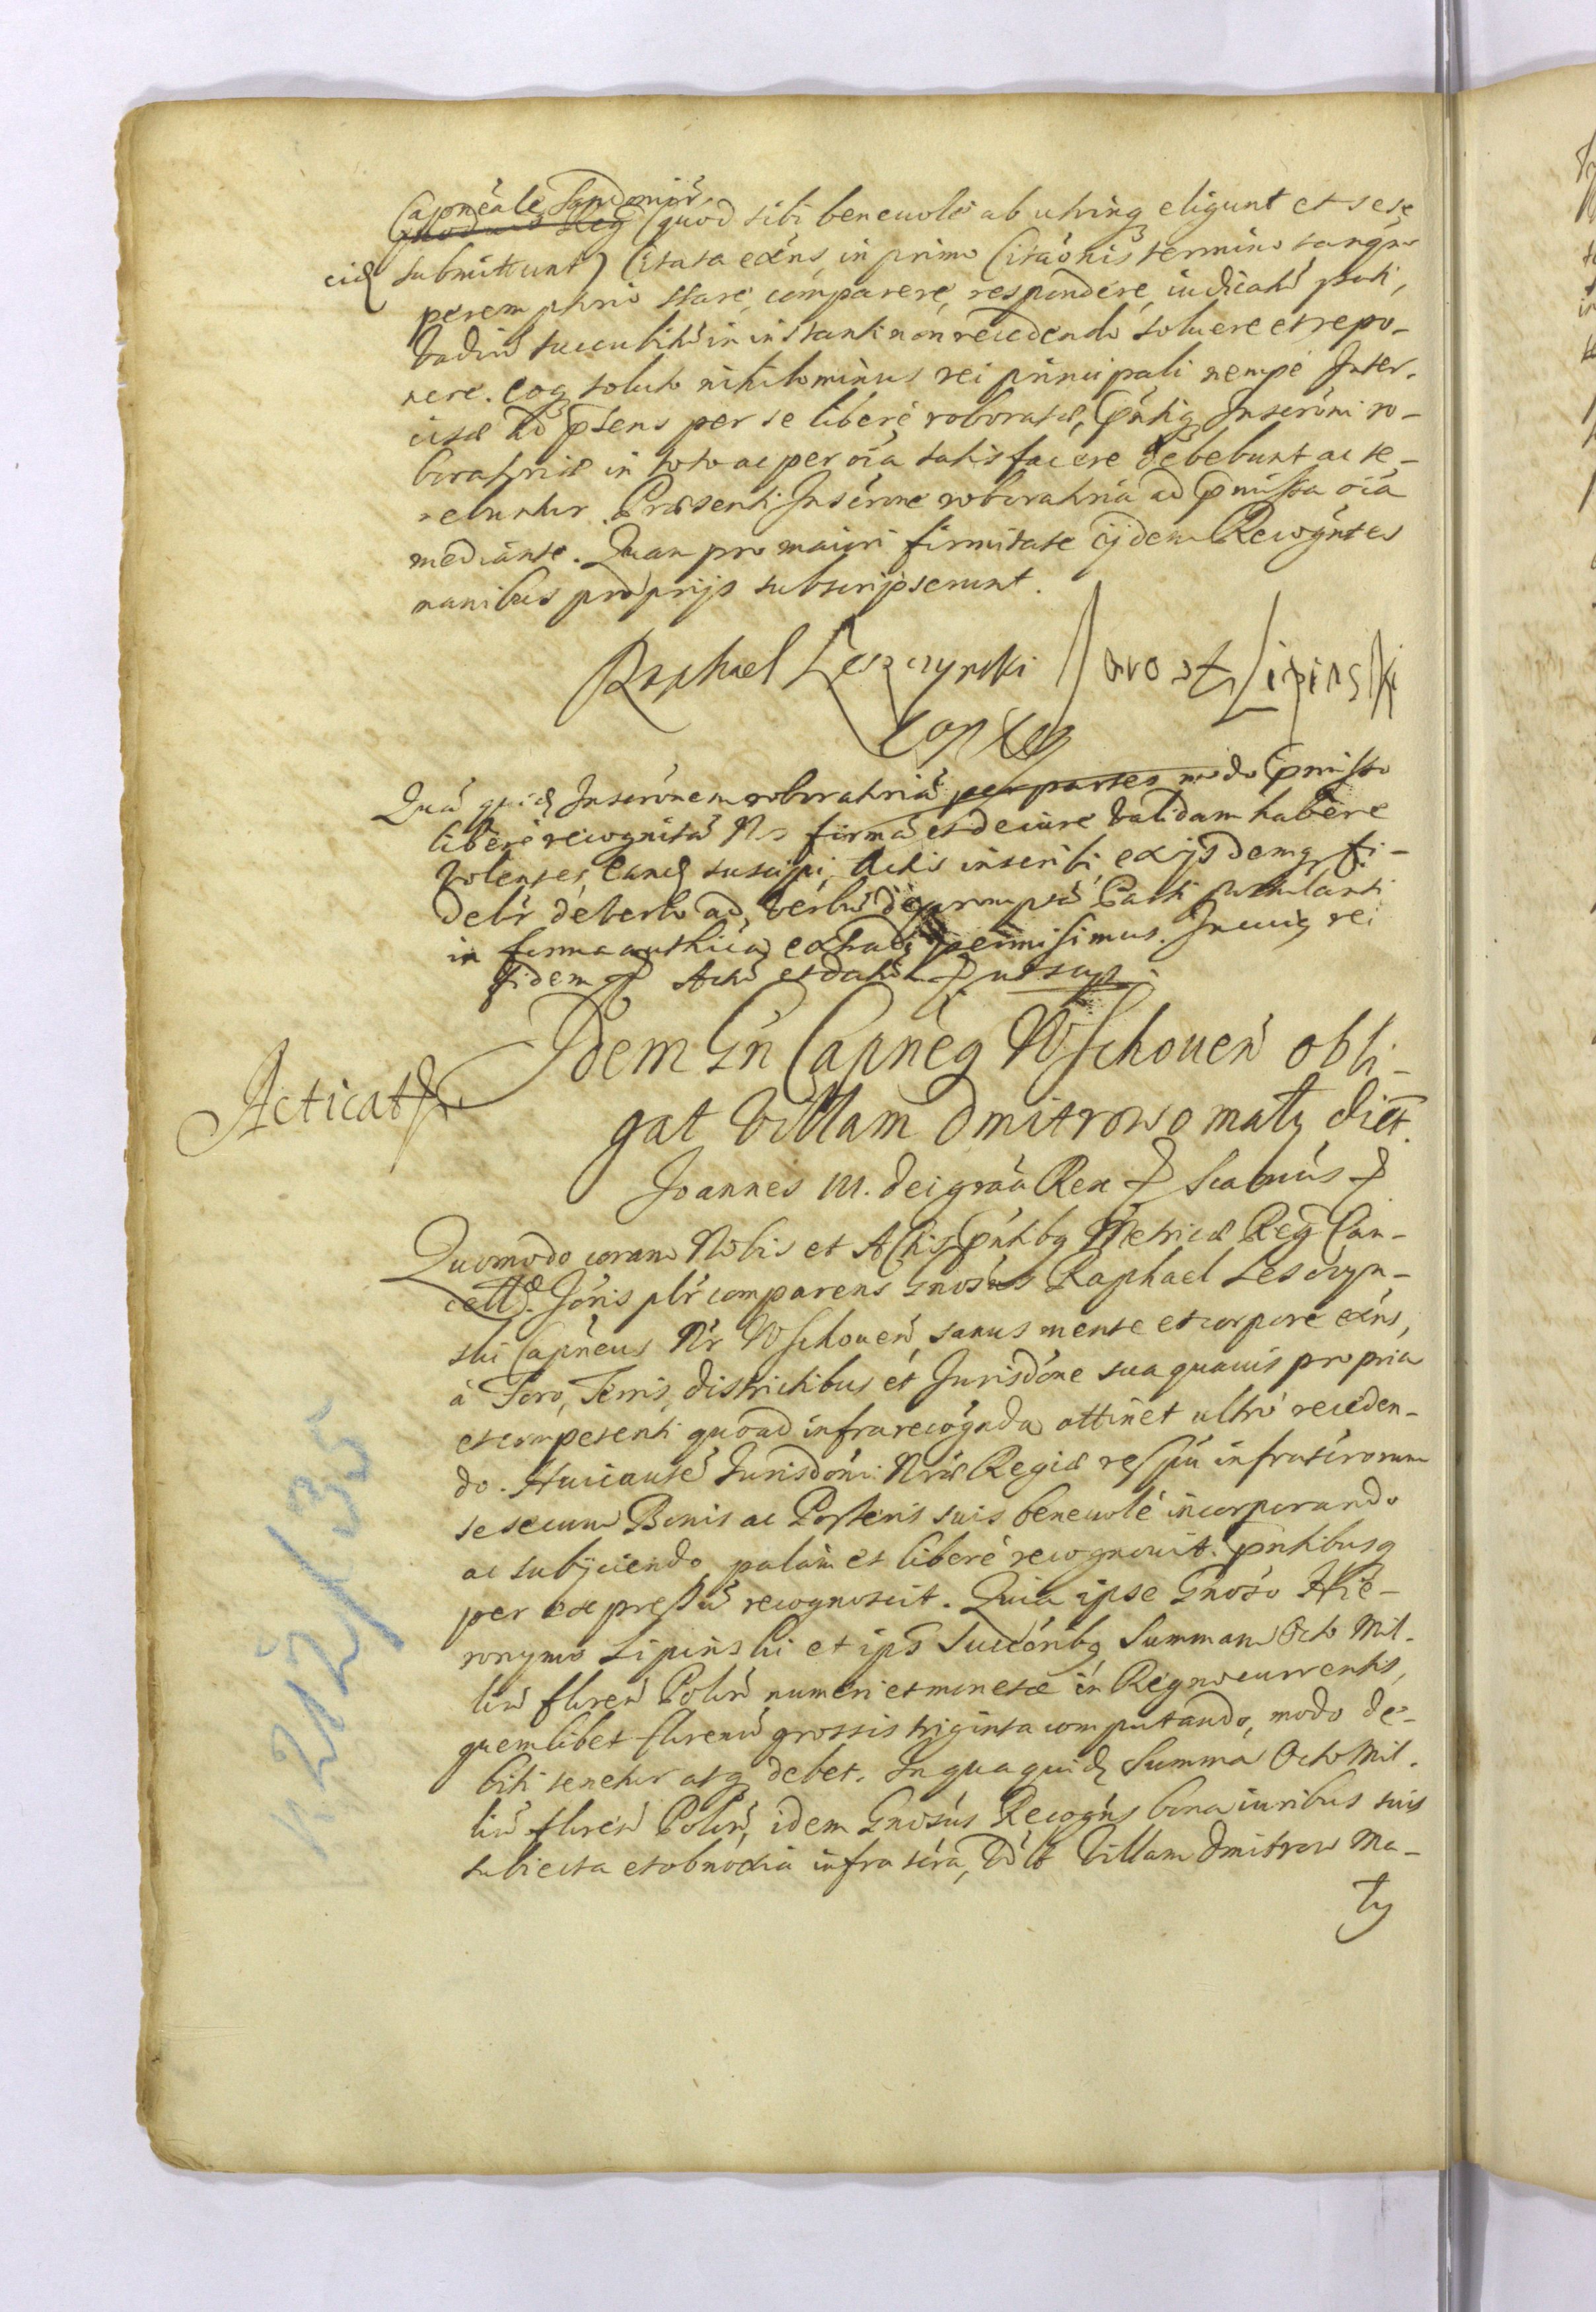 Capnéale Sandomir̃
Quod sibi beneuolè ab utrinq eligunt et sese
eid submittunt) Citata exñs in primo Citãonis termino tanq̃
peremptorio stare, comparere, respondere, iudicatũ pati,
Vadiũ succubitũ in instanti non recedendo soluere et repo-
nere. eoq soluto nihilominus rei principali nempe Inter-
cisæ Ad p̃sens per se libere roboratæ, p̃ntiq Inscrõni ro-
boratoriæ in toto ac per oĩa satisfacere debebunt ac te-
nebuntur. Præsenti Inscrõne roboratoria ad p̃missa oĩa
mediante. Quam pro maiori firmitate ijdem Recogñtes
manibus proprijs subscripserunt.
Raphael Leszczynski
Lipinski
Quã quid Inscrõnem roboratoriã per partes modo p̃misso
liberè recognitã Nos firmã et de iure Validam habere
Volentes, eand suscipi, Actis inscribi, ex ijsdemq fi-
delr̃ de verbo ad verbũ depromptã Parti postulanti
in forma authĩca extradi permisimus. In cuiq rei
fidem Actũ et datũ ut sup.
Acticat
Idem Gñ Capneq Wschoueñ obli-
gat Villam Dmitrowo mały dict.
Joannes III. Dei grãa Rex Scabinus
Quomodo coram Nobis et Actis p̃ntibq Metricæ Reg Can-
cell. Jóris plr̃ comparens Gnosus Raphael Lesczyn-
ski Capneus Nr̃ Wschoueñ, sanus mente et corpore exñs,
à Foro, Terris, districtibus et Jurisdõne sua quauis propria
et competenti quoad infrarecogñda attinet ultrò receden-
do. Huic autẽ Jurisdõni Nr̃æ Regiæ infrascrorum
se secum Bonis ac Posteris suis beneuolè incorporando
ac subijciendo, palàm et liberè recognouit. p̃ntibusq
per expressũ recognoscit. Quia ipse Gnoso Hie-
ronymo Lipinski et ips Succõribq Summam Octo Mil-
liũ floreñ Poloñ numeri et monetæ in Regno currentis,
quemlibet florenũ grossis triginta computando, modo de-
biti tenetur atq debet. In qua quid Summa Octo Mil-
liũ floreñ Poloñ, idem Gnosus Recogñs bona iuribus suis
subiecta et obnoxia infrascra, Vdlt Villam Dmitrow Ma-
ły
K 212/35